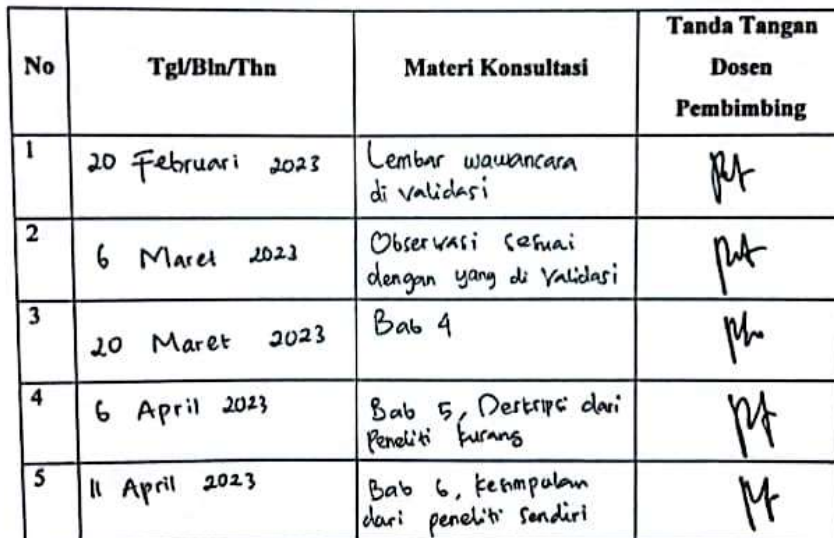 No Tgl/Bln/Thn Materi Konsultasi Tanda Tangan
Dosen
Pembimbing
1 20 Februari 2023 Lembar wawancara
di validasi
2 6 Maret 2023 Observasi sesuai
dengan yang di validasi
3 20 Maret 2023 Bab 4
4 6 April 2023 Bab 5, Deskripsi dari
Peneliti kurang
5 11 April 2023 Bab 6, kesimpulan
dari peneliti sendiri